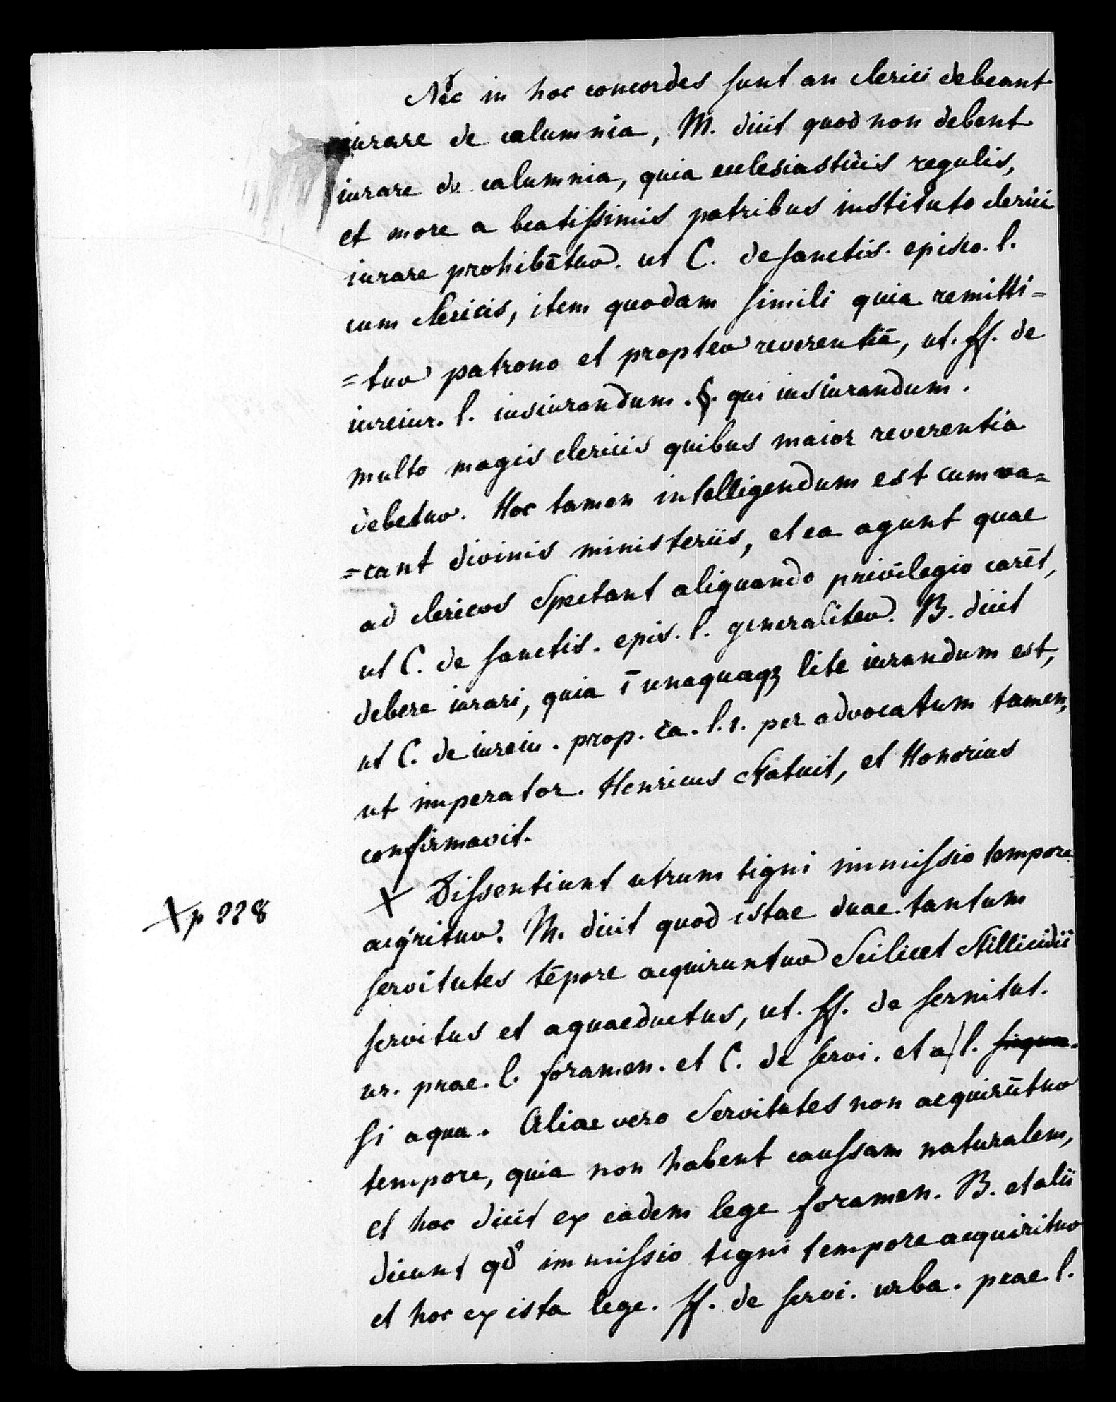 Nec in hoc concordes sunt an clerici debeant
iurare de calumnia, M. dicit quod non debent
iurare de calumnia, quia ecclesiasticis regulis,
et more a beatissimis patribus instituto clerici
iurare prohibētur. ut C. de sanctis. episco. l.
cum clericis, item quodam simili quia remitti=
=tur patrono et propter reverentiā, ut. ff. de
iureiur. l. iusiurandum. §. qui iusiurandum.
multo magis clericis quibus maior reverentia
debetur. Hoc tamen intelligendum est cum va=
=cant divinis ministeriis, et ea agunt quae
ad clericos spectant aliquando privilegio carēt,
ut C. de sanctis. epis. l. generaliter. B. dicit
debere iurari, quia ī unaquaqꝫ lite iurandum est,
ut C. de iureiu. prop. ca. l. 1. per advocatum tamen,
ut imperator Henricus statuit, et Honorius
confirmavit.
X Dissentiunt utrum tigni immissio tempore
X p 228
acqritur. M. dicit quod istae duae tantum
servitutes tēpore acquiruntur scilicet stillicidii
servitus et aquaeductus, ut. ff. de servitut.
ur. prae. l. foramen. et C. de servi. et a l. siqua.
si aqua. Aliae vero servitutes non acquirūtur
tempore, quia non habent caussam naturalem,
et hoc dicit ex eadem lege foramen. B. et alii
dicunt qđ immissio tigni tempore acquiritur
et hoc ex ista lege. ff. de servi. urba. prae. l.